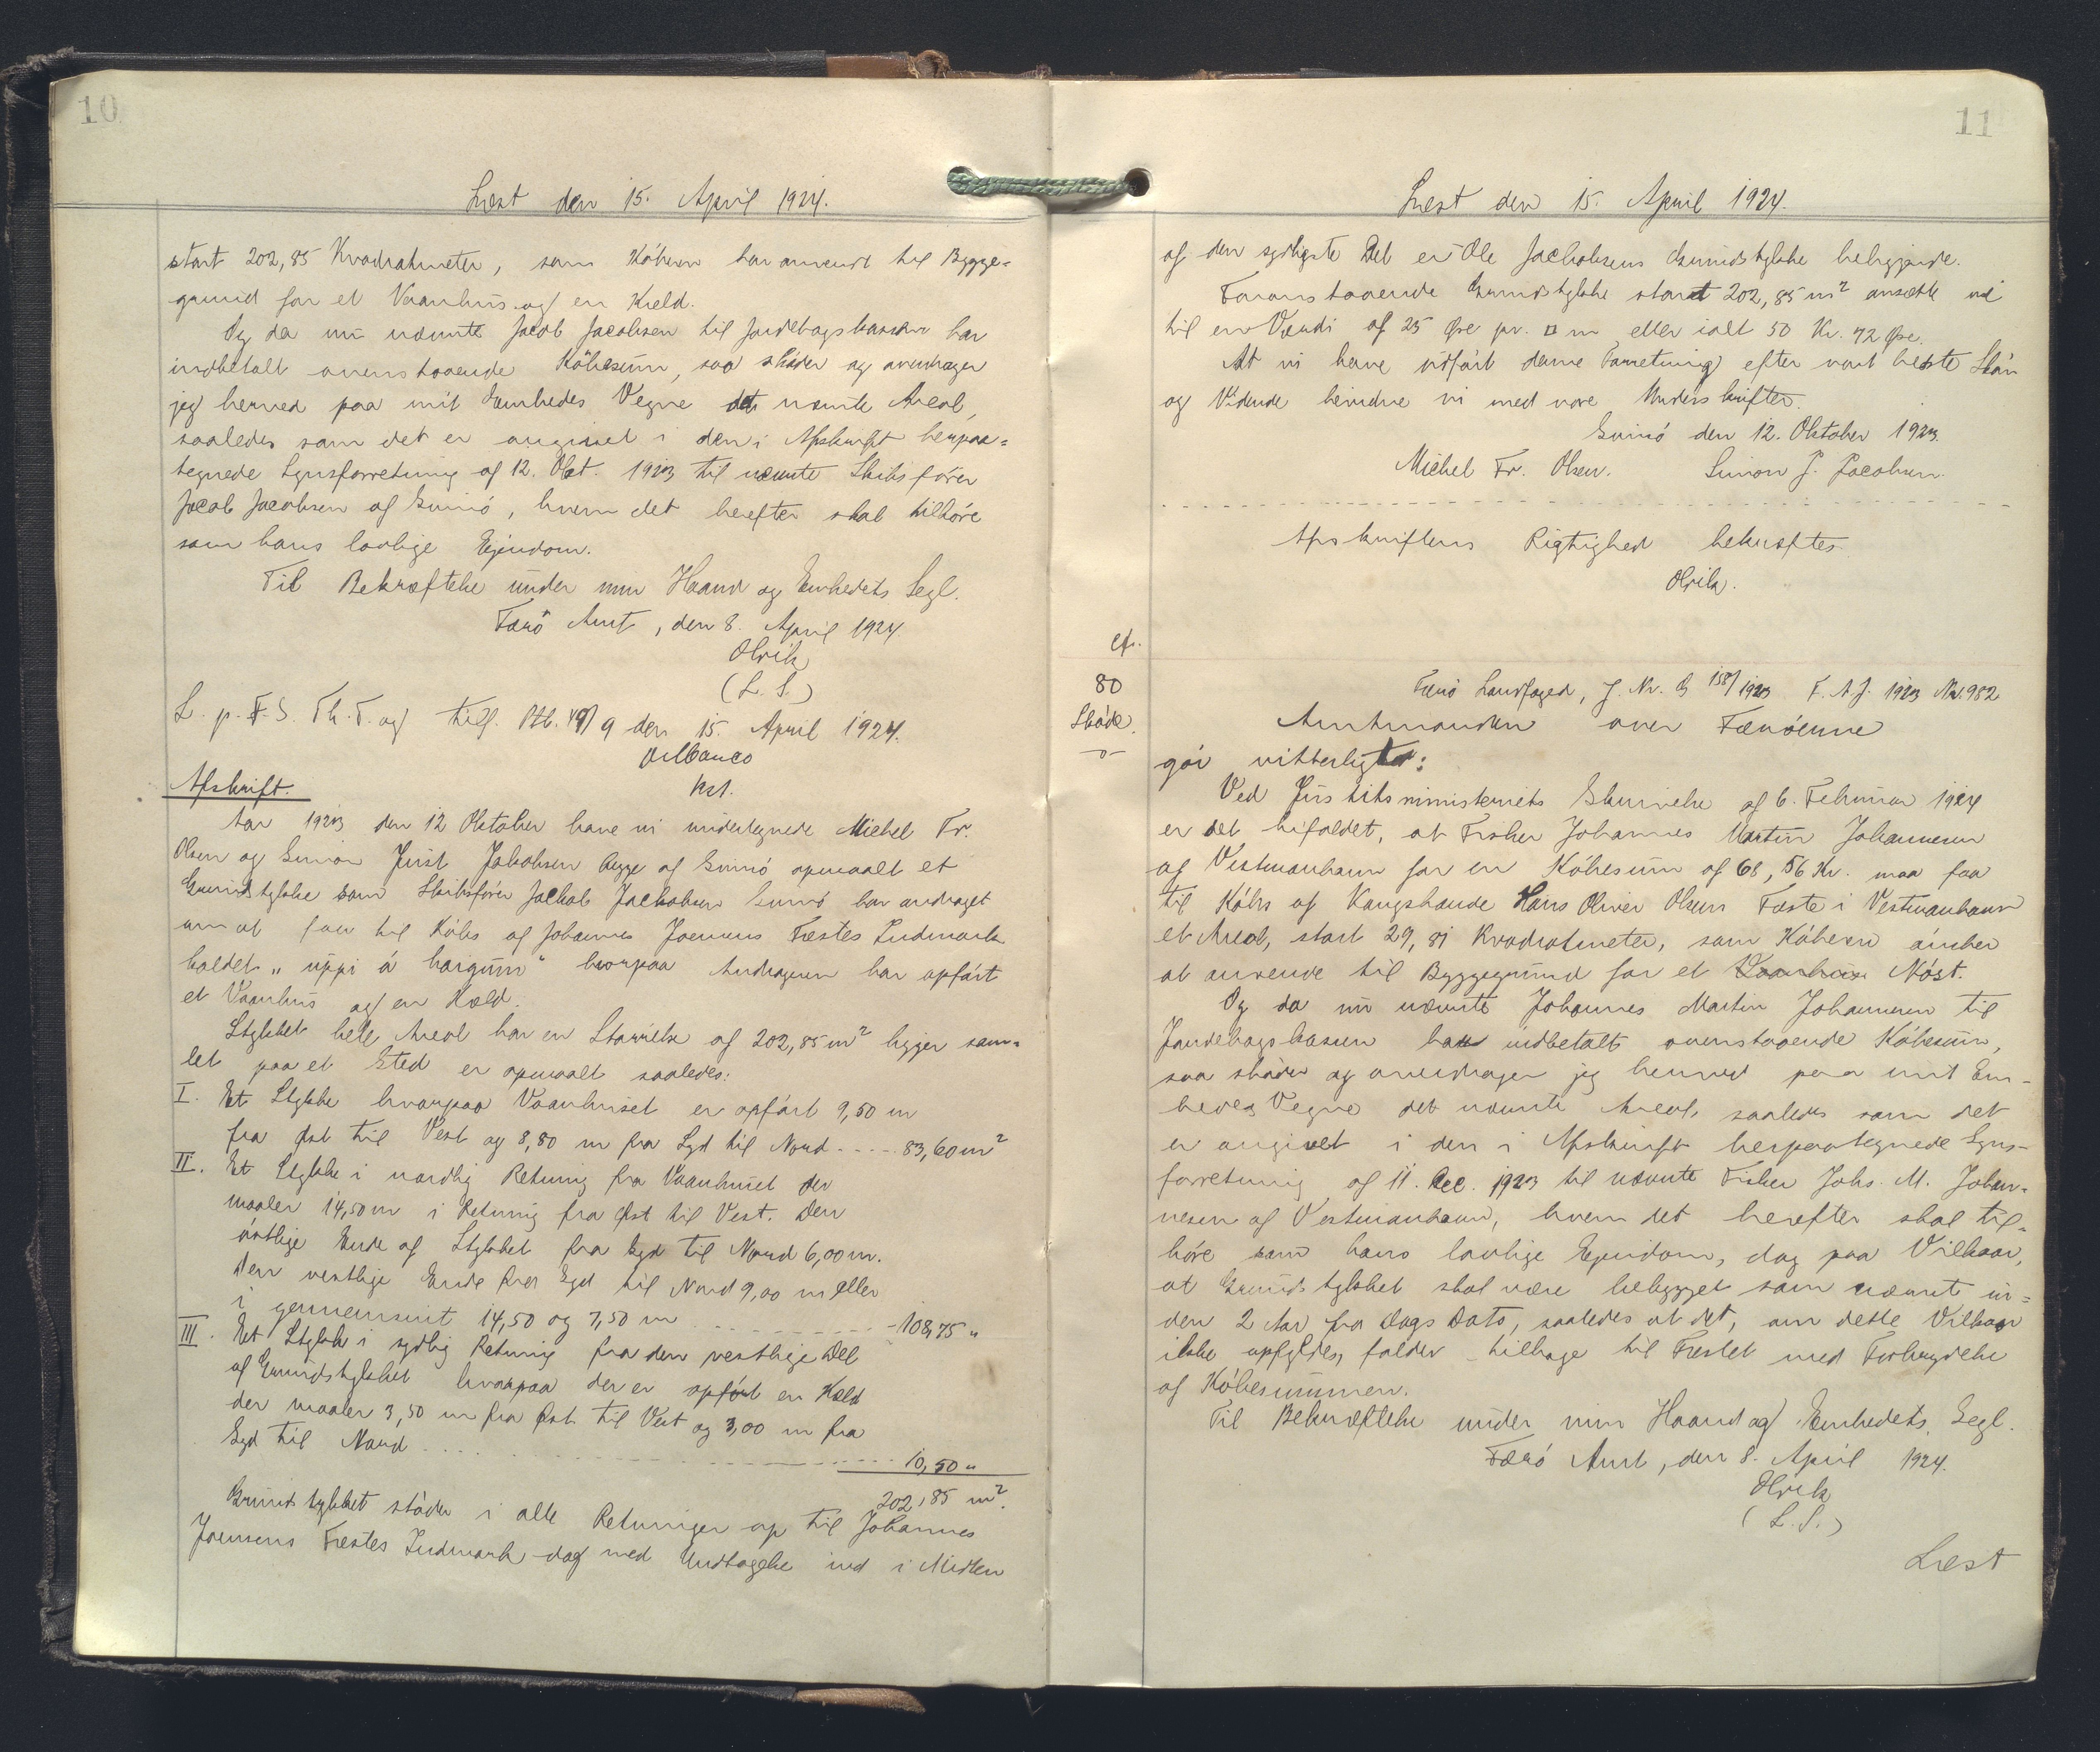 10
Læst den 15. April 1924.
stort 202,85 Kvadratmeter, som Köberen har anvendt til Bygge-
grund for et Vaanhus og en Kæld.
Og da nu nævnte Jacob Jacobsen til Jordebogskassen har
indbetalt ovenstaaende Köbesum, saa skøder og overdrager
jeg herved paa mit Embedes Vegne det nævnte Areal,
saaledes som det er angivet i den i Afskrift herpaa-
tegnede Synsforretning af 12. Okt. 1923 til nævnte Skibsfører
Jacob Jacobsen af Svinö, hvem det herefter skal tilhöre
som hans lovlige Ejendom.
Til Bekræftelse under min Haand og Embedets Segl.
Færö Amt, den 8. April 1924.
Olrik
(L. S.)
L. p. F. S. Th. T. og tilf. Ptb. 9 den 15. April 1924.
Kst.
Afskrift.
Aar 1923 den 12 Oktober have vi undertegnede Michel Fr.
Olsen og Simon Just Jakobsen begge af Svinö opmaalt et
Grundstykke som Skibsfører Jackob Jackobsen Svinö har andraget
om at faa til Köbs af Johannes Joensens Fæstes Indmark
kaldet "uppi á hargum" hvorpaa Andrageren har opfört
et Vaanhus og en Kæld.
Stykket hele Areal har en Størrelse af 202,85 m² ligger sam-
let paa et Sted er opmaalt saaledes:
I. Et Stykke hvorpaa Vaanhuset er opfört 9,50 m
fra Øst til Vest og 8,80 m fra Syd til Nord - - - - 83,60 m²
II. Et Stykke i nordlig Retning fra Vaanhuset der
maaler 14,50 m i Retning fra Øst til Vest. Den
östlige Ende af Stykket fra Syd til Nord 6,00 m.
Den vestlige Ende fra Syd til Nord 9,00 m eller
i gennemsnit 14,50 og 7,50 m - - - - - - - 108,75 "
III. Et Stykke i sydlig Retning fra den vestlige Del
af Grundstykket hvorpaa der er opfört en Kæld
der maaler 3,50 m fra Øst til Vest og 3,00 m fra
Syd til Nord - - - - - - - - - 10,50 "
202,85 m².
Grundstykket støder i alle Retninger op til Johannes
Joensens Fæstes Indmark dog med Undtagelse ind i Midten
11
Læst den 15. April 1924.
af den sydligste Del er Ole Jackobsens Grundstykke beliggende.
Foranstaaende Grundstykke stort 202,85 m² ansatte vi
til en Værdi af 25 Øre pr. □ m eller ialt 50 Kr. 72 Øre.
At vi have udfört denne Forretning efter vort bedste Skön
og Vidende bevidne vi med vore Underskrifter.
Svinö den 12. Oktober 1923.
Michel Fr. Olsen. Simon J. Jacobsen.
Afskriftens Rigtighed bekræftes
Olrik.
cfr.
80
Sköde.
Færö Landfoged, J. Nr. G 158/1923 F. A. J. 1923 Nr. 982
Amtmanden over Færöerne
gör vitterligt:
Ved Justitsministeriets Skrivelse af 6. Februar 1924
er det bifaldet, at Fisker Johannes Martin Johannesen
af Vestmanhavn for en Köbesum af 68,56 Kr. maa faa
til Köbs af Kongsbonde Hans Oliver Olsens Fæste i Vestmanhavn
et Areal, stort 29,81 Kvadratmeter, som Köberen önsker
at anvende til Byggegrund for et Vaanhus Nöst.
Og da nu nævnte Johannes Martin Johannesen til
Jordebogskassen har indbetalt ovenstaaende Köbesum,
saa skøder og overdrager jeg herved paa mit Em-
bedes Vegne det nævnte Areal, saaledes som det
er angivet i den i Afskrift herpaategnede Syns-
forretning af 11. Dec. 1923 til nævnte Fisker Johs. M. Johan-
nesen af Vestmanhavn, hvem det herefter skal til-
höre som hans lovlige Ejendom, dog paa Vilkaar,
at Grundstykket skal være bebygget som nævnt in-
den 2 Aar fra Dags Dato, saaledes at det, om dette Vilkaar
ikke opfyldes, falder tilbage til Fæstet med Fortrydelse
af Köbesummen.
Til Bekræftelse under min Haand og Embedets Segl.
Færö Amt, den 8. April 1924.
Olrik
(L. S.)
Læst